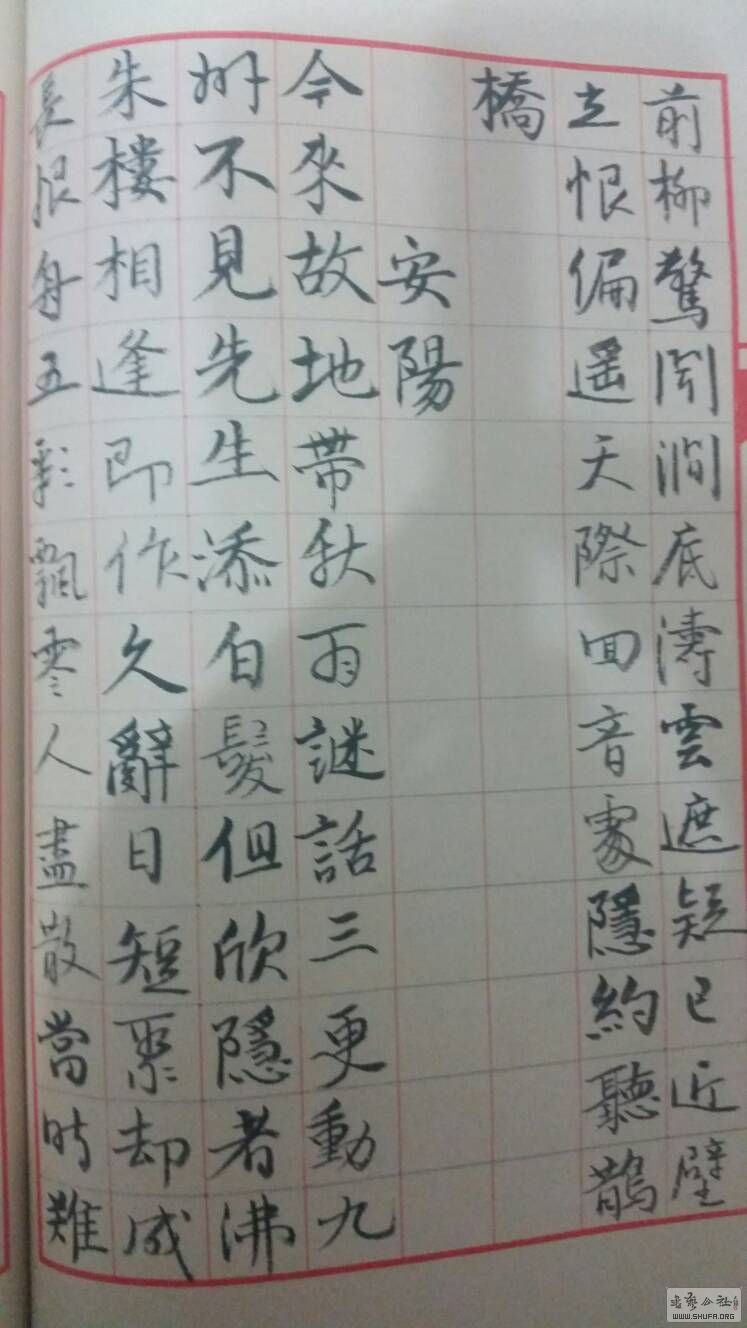 前柳驚聞澗底濤雲遮疑已近壁
立恨偏遥天際回音處隱約聽鵲
橋
安陽
今來故地帶秋雨謎話三更動九
州不見先生添白髮但欣隱者沸
朱樓相逢即作久辭日短聚却成
長恨身五彩飄零人盡散當時難
WWW.SHUFA.ORG